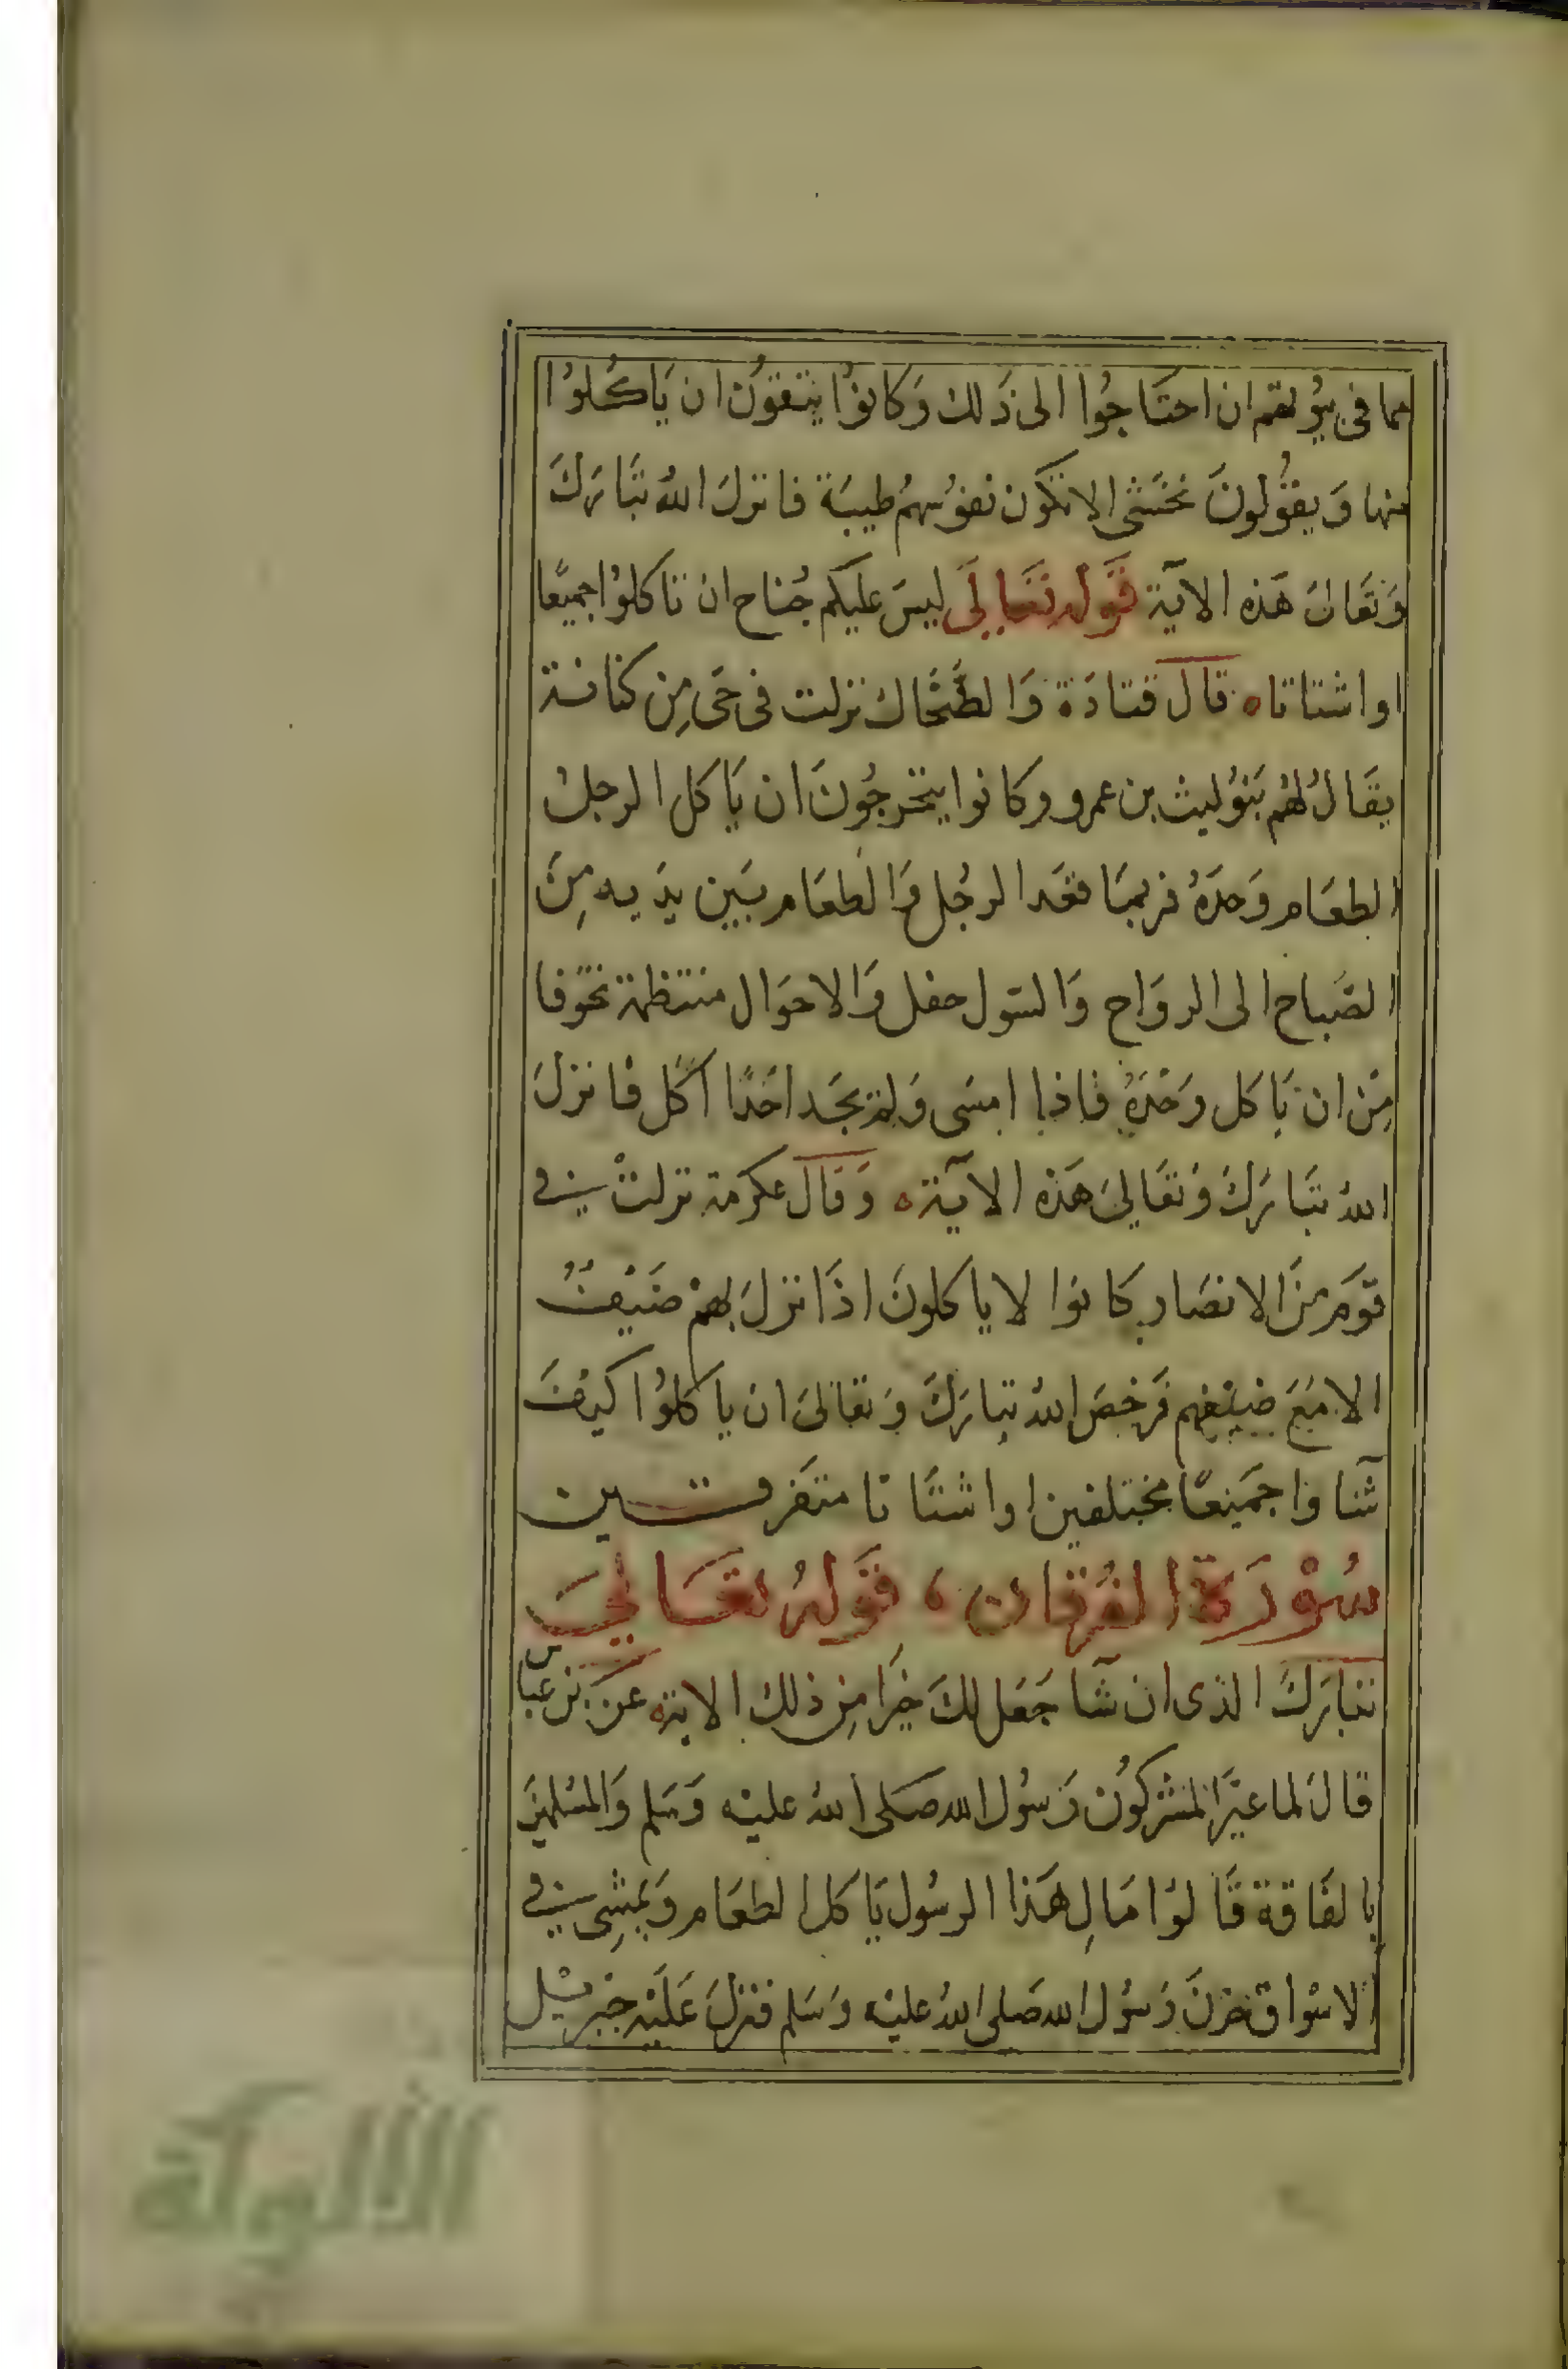 مما في بيوتهم ان احتَاجُوا الى ذَلك وَكانوُا يتقوُن ان يَاكلوُا
منها وَيقوُلونَ نخشَى الا تكون نفوُسهمُ طيبَة فانزلَ اللهُ تبَارَكَ
وَتعَالىَ هَذه الآية قَوله تعَالَى ليسَ عليكم جُناح ان تاكلوُا جميعًا
او اشتاتاه قال قتادَة وَالضَّحاك نزلت فى حَى مِن كنانة
يقَالُ لهُم بَنوُ ليث بن عمرو وكانوا يتحرجُونَ ان يَاكل الرجلُ
الطعَام وَحدَهُ فربمَا قعَد الرجُل وَالطعَام بَين يدَيه مِنَ
الصَباح الى الروَاح وَالشول حفل وَالاحوَال منتظمة تحوّفا
مِنْ ان يَاكل وَحْدَهُ فاذا امسَى وَلم يجَد احَدًا اكَل فانزلَ
اللهُ تبَارَكَ وَتعَالىَ هَذه الآية ه وَقال عكرمَة نزلتْ في
قوَم منَ الانصَار كانوا لا ياكلونَ اذَا نزلَ بهمْ ضَيْفٌ
الا مَعَ ضيْفهم فرَخصَ اللهُ تبارَكَ وَتعَالىَ ان ياكلوُا كيْفَ
شآاوا جَميْعًا مختلفين او اشتَاتا متفَرقين
سُوْرَة الفُرقان ، قوَلهُ تعَالىَ
تبَارَكَ الذى ان شآا جَعَل لكَ خيرَا مِن ذلك الاية ه عَن بْن عبَاس
قالَ لما عيَّرَ المشرِكوُن رَسوُل الله صَلى اللهُ عليْه وَسَلم وَالمسْلميْنَ
بالفَاقة قَالوُا مَالِ هَذا الرسُول يَاكل الطعَام وَيمشِى في
الاسْوَاق حَزنَ رَسُول الله صَلى اللهُ عليْه وَسَلم فنزلَ عَليْه جبْريْل
الألوكة